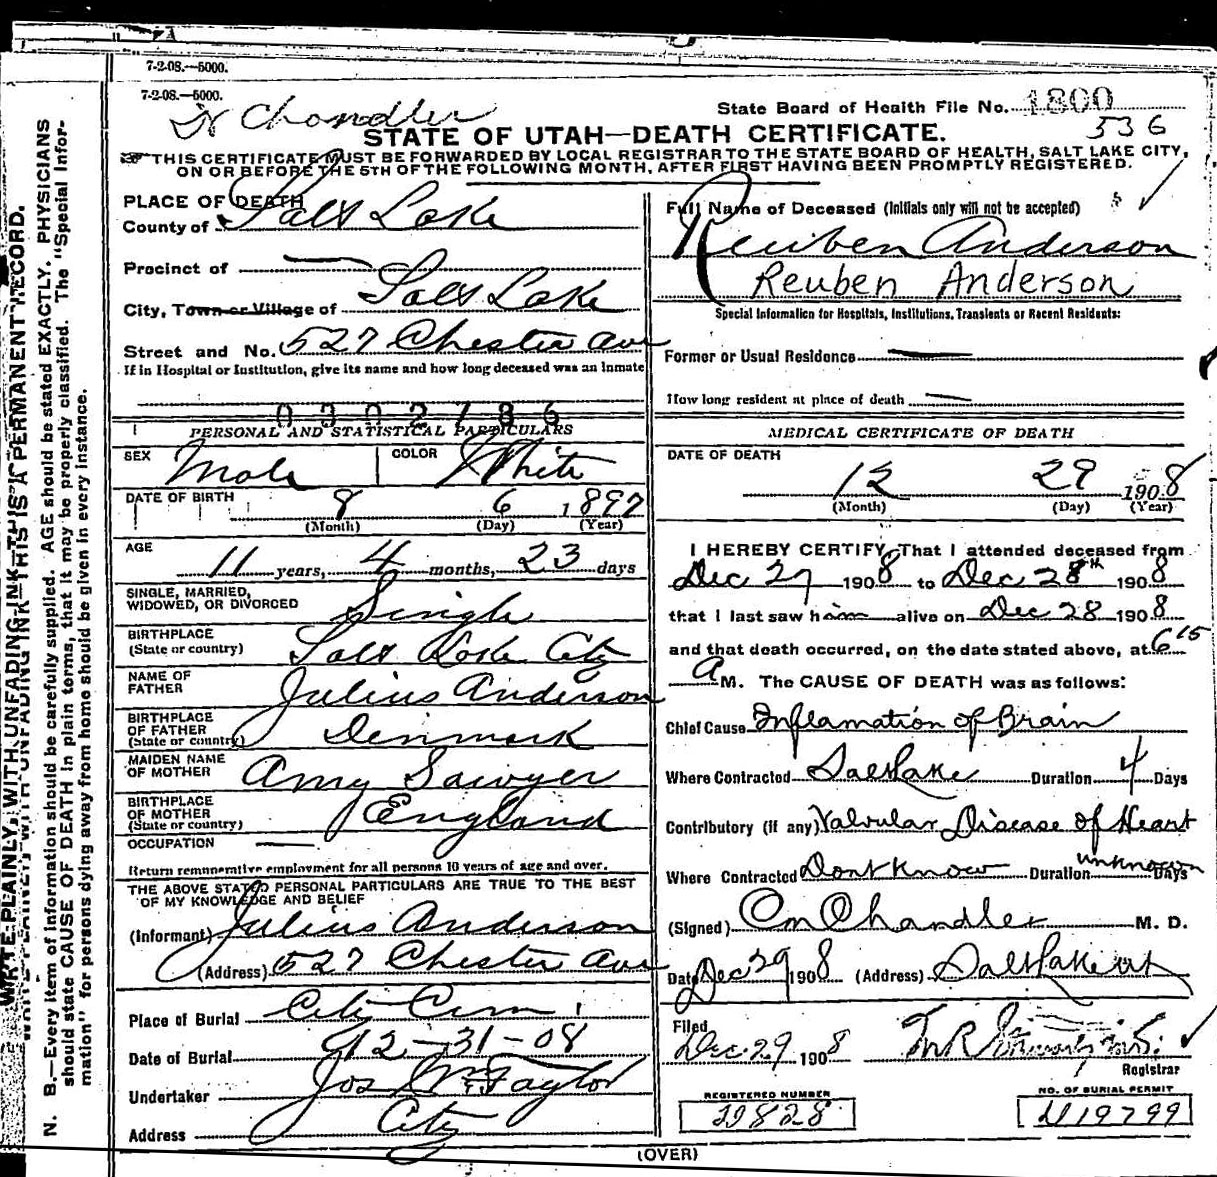 7-2-08.—5000.
7-2-08.—5000.
Dr Chandler
State Board of Health File No. 1800
536
STATE OF UTAH—DEATH CERTIFICATE.
THIS CERTIFICATE MUST BE FORWARDED BY LOCAL REGISTRAR TO THE STATE BOARD OF HEALTH, SALT LAKE CITY,
ON OR BEFORE THE 5TH OF THE FOLLOWING MONTH, AFTER FIRST HAVING BEEN PROMPTLY REGISTERED.
WRITE PLAINLY, WITH UNFADING INK—THIS IS A PERMANENT RECORD.
N. B.—Every item of information should be carefully supplied. AGE should be stated EXACTLY. PHYSICIANS
should state CAUSE OF DEATH in plain terms, that it may be properly classified. The "Special Infor-
mation" for persons dying away from home should be given in every instance.
PLACE OF DEATH
County of Salt Lake
Precinct of —
City, Town or Village of Salt Lake
Street and No. 527 Chester Ave
If in Hospital or Institution, give its name and how long deceased was an inmate
0302786
PERSONAL AND STATISTICAL PARTICULARS
SEX Male COLOR White
DATE OF BIRTH 8 6 1897
(Month) (Day) (Year)
AGE 11 years, 4 months, 23 days
SINGLE, MARRIED,
WIDOWED, OR DIVORCED Single
BIRTHPLACE
(State or country) Salt Lake City
NAME OF
FATHER Julius Anderson
BIRTHPLACE
OF FATHER
(State or country) Denmark
MAIDEN NAME
OF MOTHER Amy Sawyer
BIRTHPLACE
OF MOTHER
(State or country) England
OCCUPATION —
Return remunerative employment for all persons 10 years of age and over.
THE ABOVE STATED PERSONAL PARTICULARS ARE TRUE TO THE BEST
OF MY KNOWLEDGE AND BELIEF
(Informant) Julius Anderson
(Address) 527 Chester Ave
Place of Burial City Cem
Date of Burial 12-31-08
Undertaker Jos Wm Taylor
Address City
Full Name of Deceased (Initials only will not be accepted)
Reuben Anderson
Reuben Anderson
Special Information for Hospitals, Institutions, Transients or Recent Residents:
Former or Usual Residence —
How long resident at place of death —
MEDICAL CERTIFICATE OF DEATH
DATE OF DEATH
12 29 1908
(Month) (Day) (Year)
I HEREBY CERTIFY, That I attended deceased from
Dec 27 1908 to Dec 28th 1908
that I last saw him alive on Dec 28 1908
and that death occurred, on the date stated above, at 6 15
A M. The CAUSE OF DEATH was as follows:
Chief Cause Inflamation of Brain
Where Contracted Salt Lake Duration 4 Days
Contributory (if any) Valvular Disease of Heart
Where Contracted Dont Know Duration unknown Days
(Signed) Chandler M. D.
Date Dec 29 1908 (Address) Salt Lake Ut
Filed
Dec 29 1908
Registrar
REGISTERED NUMBER
29828
NO. OF BURIAL PERMIT
19799
(OVER)